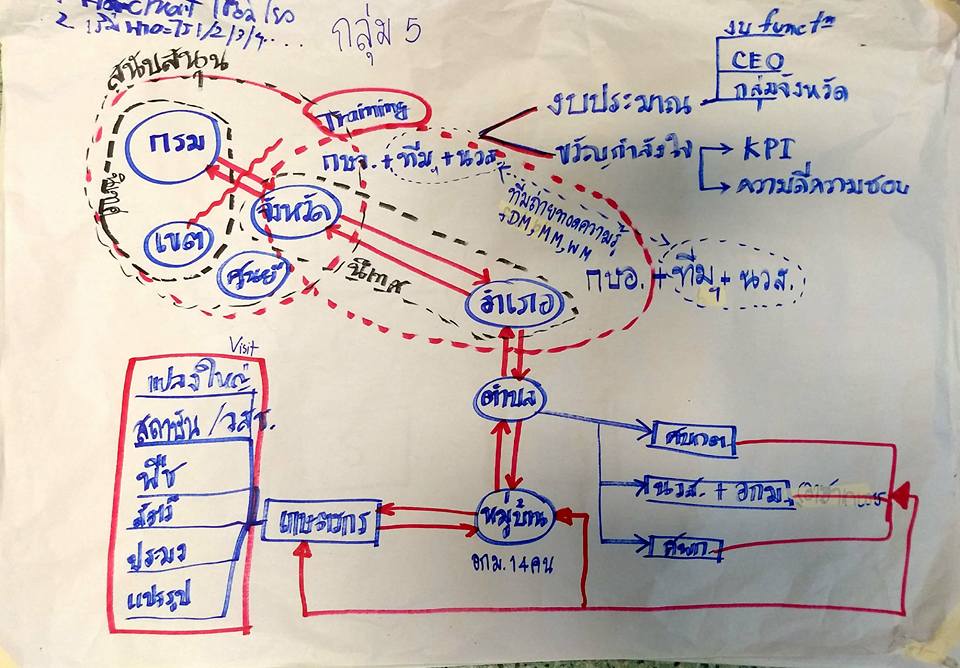 2. เริ่ม 1/2/3/4....
กลุ่ม 5
สนับสนุน
Training
กรม
เขต
จังหวัด
ศูนย์
นิเทศ
อำเภอ
กษจ. + ทีม + นวส.
งบประมาณ
งบ funct
CEO
กลุ่มจังหวัด
ขวัญกำลังใจ
KPI
ความดีความชอบ
ทีมถ่ายทอดความรู้
DM, MM, WM
กษอ. + ทีม + นวส.
ตำบล
ศบกต
นวส. + อกม.
ศพก
หมู่บ้าน
อกม. 14 คน
เกษตรกร
Visit
แปลงใหญ่
สถาบัน / วสช.
พืช
สัตว์
ประมง
แปรรูป